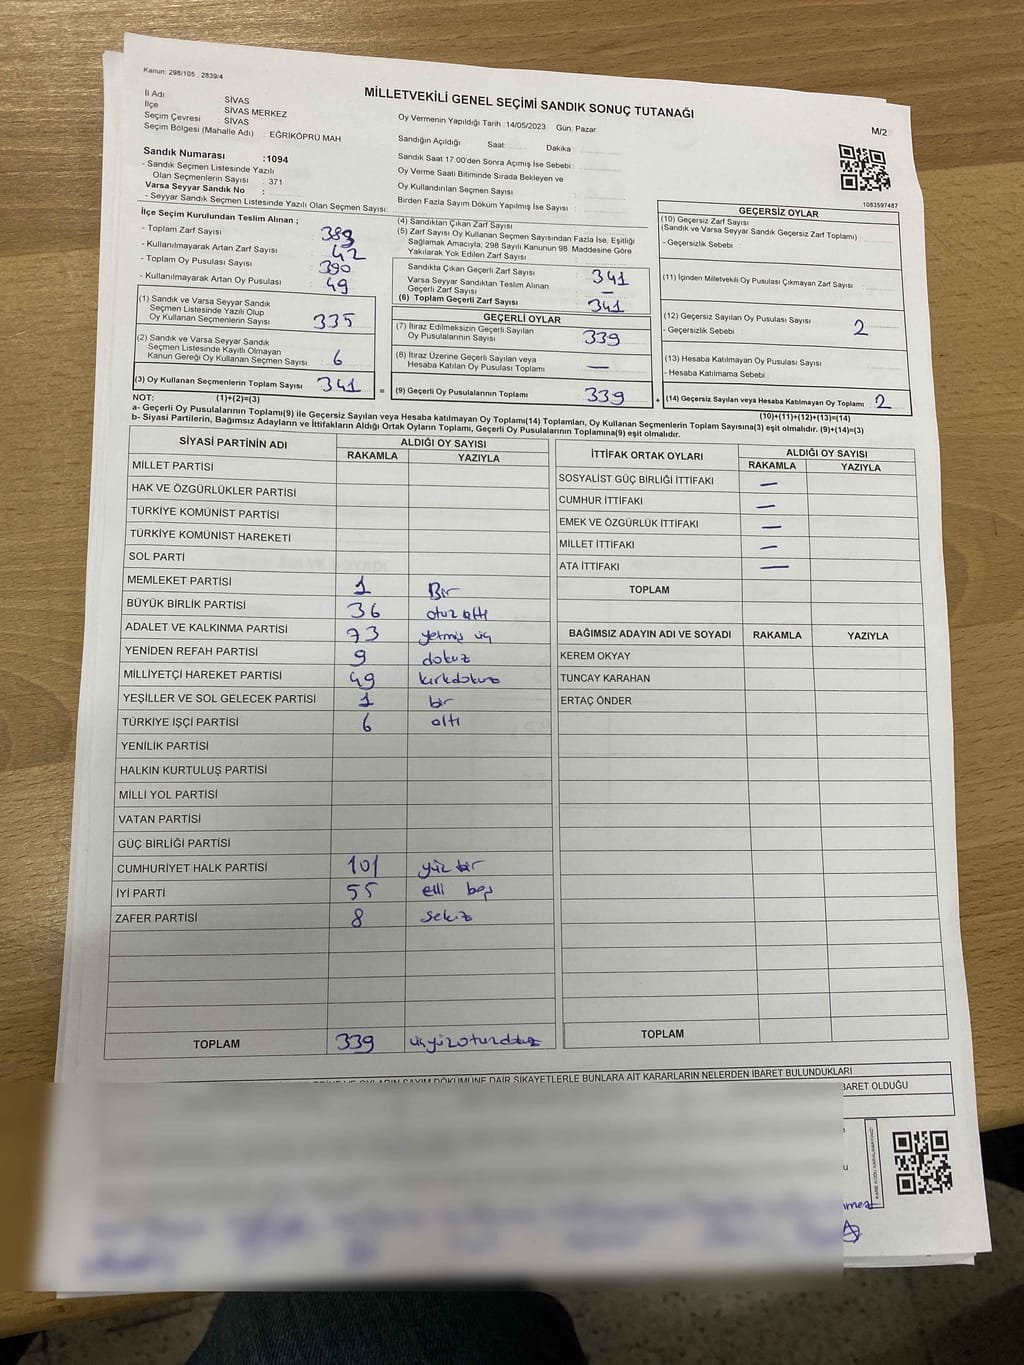 Kanun: 298/105 , 2839/4
MİLLETVEKİLİ GENEL SEÇİMİ SANDIK SONUÇ TUTANAĞI
M/2
İl Adı SİVAS
İlçe SİVAS MERKEZ
Seçim Çevresi SİVAS
Seçim Bölgesi (Mahalle Adı) EĞRİKÖPRÜ MAH
Sandık Numarası :1094
- Sandık Seçmen Listesinde Yazılı
Olan Seçmenlerin Sayısı : 371
Varsa Seyyar Sandık No :
- Seyyar Sandık Seçmen Listesinde Yazılı Olan Seçmen Sayısı:
Oy Vermenin Yapıldığı Tarih :14/05/2023 Gün. Pazar
Sandığın Açıldığı Saat: Dakika :
Sandık Saat 17:00'den Sonra Açımış İse Sebebi :
Oy Verme Saati Bitiminde Sırada Bekleyen ve
Oy Kullandırılan Seçmen Sayısı
Birden Fazla Sayım Döküm Yapılmış İse Sayısı :
1083597487
İlçe Seçim Kurulundan Teslim Alınan ;
- Toplam Zarf Sayısı 383
- Kullanılmayarak Artan Zarf Sayısı : 42
- Toplam Oy Pusulası Sayısı 390
- Kullanılmayarak Artan Oy Pusulası 49
(1) Sandık ve Varsa Seyyar Sandık
Seçmen Listesinde Yazılı Olup
Oy Kullanan Seçmenlerin Sayısı : 335
(2) Sandık ve Varsa Seyyar Sandık
Seçmen Listesinde Kayıtlı Olmayan
Kanun Gereği Oy Kullanan Seçmen Sayısı : 6
(3) Oy Kullanan Seçmenlerin Toplam Sayısı : 341 =
NOT: (1)+(2)=(3)
(4) Sandıktan Çıkan Zarf Sayısı
(5) Zarf Sayısı Oy Kullanan Seçmen Sayısından Fazla İse, Eşitliği
Sağlamak Amacıyla, 298 Sayılı Kanunun 98. Maddesine Göre
Yakılarak Yok Edilen Zarf Sayısı
Sandıkta Çıkan Geçerli Zarf Sayısı : 341
Varsa Seyyar Sandıktan Teslim Alınan
Geçerli Zarf Sayısı : —
(6) Toplam Geçerli Zarf Sayısı : 341
GEÇERLİ OYLAR
(7) İtiraz Edilmeksizin Geçerli Sayılan
Oy Pusulalarının Sayısı : 339
(8) İtiraz Üzerine Geçerli Sayılan veya
Hesaba Katılan Oy Pusulası Toplamı : —
(9) Geçerli Oy Pusulalarının Toplamı : 339 +
GEÇERSİZ OYLAR
(10) Geçersiz Zarf Sayısı
(Sandık ve Varsa Seyyar Sandık Geçersiz Zarf Toplamı) :
- Geçersizlik Sebebi :
(11) İçinden Milletvekili Oy Pusulası Çıkmayan Zarf Sayısı :
(12) Geçersiz Sayılan Oy Pusulası Sayısı : 2
- Geçersizlik Sebebi :
(13) Hesaba Katılmayan Oy Pusulası Sayısı
- Hesaba Katılmama Sebebi :
(14) Geçersiz Sayılan veya Hesaba Katılmayan Oy Toplamı : 2
(10)+(11)+(12)+(13)=(14)
a- Geçerli Oy Pusulalarının Toplamı(9) ile Geçersiz Sayılan veya Hesaba katılmayan Oy Toplamı(14) Toplamları, Oy Kullanan Seçmenlerin Toplam Sayısına(3) eşit olmalıdır. (9)+(14)=(3)
b- Siyasi Partilerin, Bağımsız Adayların ve İttifakların Aldığı Ortak Oyların Toplamı, Geçerli Oy Pusulalarının Toplamına(9) eşit olmalıdır.
SİYASİ PARTİNİN ADI ALDIĞI OY SAYISI
RAKAMLA YAZIYLA
MİLLET PARTİSİ
HAK VE ÖZGÜRLÜKLER PARTİSİ
TÜRKİYE KOMÜNİST PARTİSİ
TÜRKİYE KOMÜNİST HAREKETİ
SOL PARTİ
MEMLEKET PARTİSİ 1 Bir
BÜYÜK BİRLİK PARTİSİ 36 otuz altı
ADALET VE KALKINMA PARTİSİ 73 yetmiş üç
YENİDEN REFAH PARTİSİ 9 dokuz
MİLLİYETÇİ HAREKET PARTİSİ 49 kırkdokuz
YEŞİLLER VE SOL GELECEK PARTİSİ 1 bir
TÜRKİYE İŞÇİ PARTİSİ 6 altı
YENİLİK PARTİSİ
HALKIN KURTULUŞ PARTİSİ
MİLLİ YOL PARTİSİ
VATAN PARTİSİ
GÜÇ BİRLİĞİ PARTİSİ
CUMHURİYET HALK PARTİSİ 101 yüz bir
İYİ PARTİ 55 elli beş
ZAFER PARTİSİ 8 sekiz
TOPLAM 339 üçyüzotuzdokuz
İTTİFAK ORTAK OYLARI ALDIĞI OY SAYISI
RAKAMLA YAZIYLA
SOSYALİST GÜÇ BİRLİĞİ İTTİFAKI —
CUMHUR İTTİFAKI —
EMEK VE ÖZGÜRLÜK İTTİFAKI —
MİLLET İTTİFAKI —
ATA İTTİFAKI —
TOPLAM
BAĞIMSIZ ADAYIN ADI VE SOYADI RAKAMLA YAZIYLA
KEREM OKYAY
TUNCAY KARAHAN
ERTAÇ ÖNDER
TOPLAM
OYLARIN SAYIM DÖKÜMÜNE DAİR ŞİKAYETLERLE BUNLARA AİT KARARLARIN NELERDEN İBARET BULUNDUKLARI
İBARET OLDUĞU